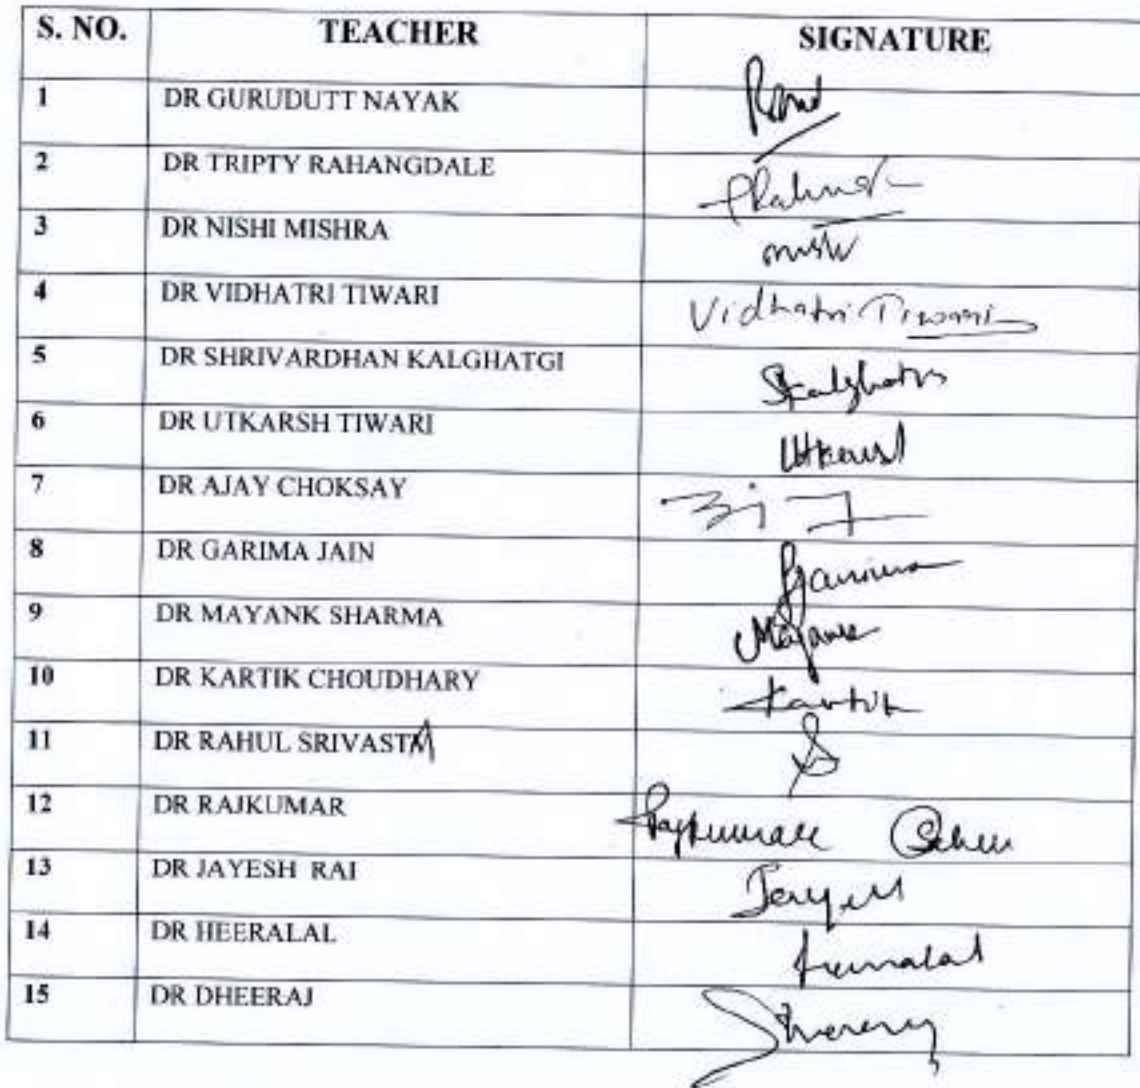 S. NO. TEACHER SIGNATURE
1 DR GURUDUTT NAYAK
2 DR TRIPTY RAHANGDALE
3 DR NISHI MISHRA
4 DR VIDHATRI TIWARI Vidhatri Tiwari
5 DR SHRIVARDHAN KALGHATGI Skalghatgi
6 DR UTKARSH TIWARI Utkarsh
7 DR AJAY CHOKSAY
8 DR GARIMA JAIN Garima
9 DR MAYANK SHARMA Mayank
10 DR KARTIK CHOUDHARY Kartik
11 DR RAHUL SRIVASTA
12 DR RAJKUMAR
13 DR JAYESH RAI Jayesh
14 DR HEERALAL Heeralal
15 DR DHEERAJ